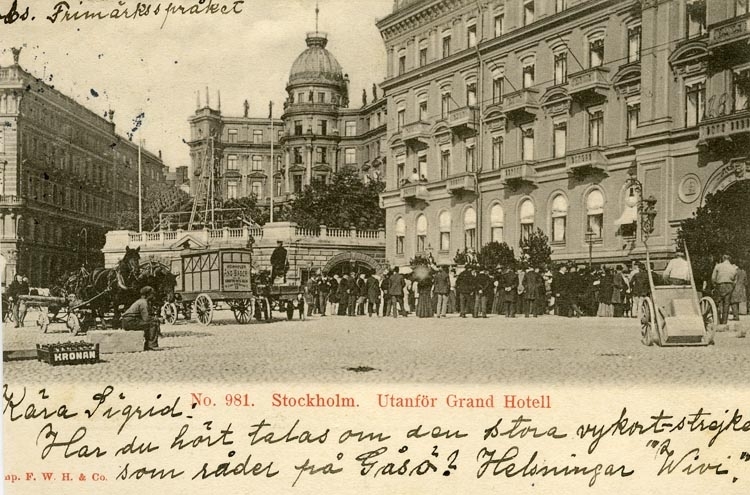 Ms. Frimärksspråket
KRONAN
No. 981. Stockholm. Utanför Grand Hotell
Kära Sigrid!
Har du hört talas om den stora vykort-strejken
som råder på Gåsö? Helsningar "Wivi."
mp. F. W. H. & Co.